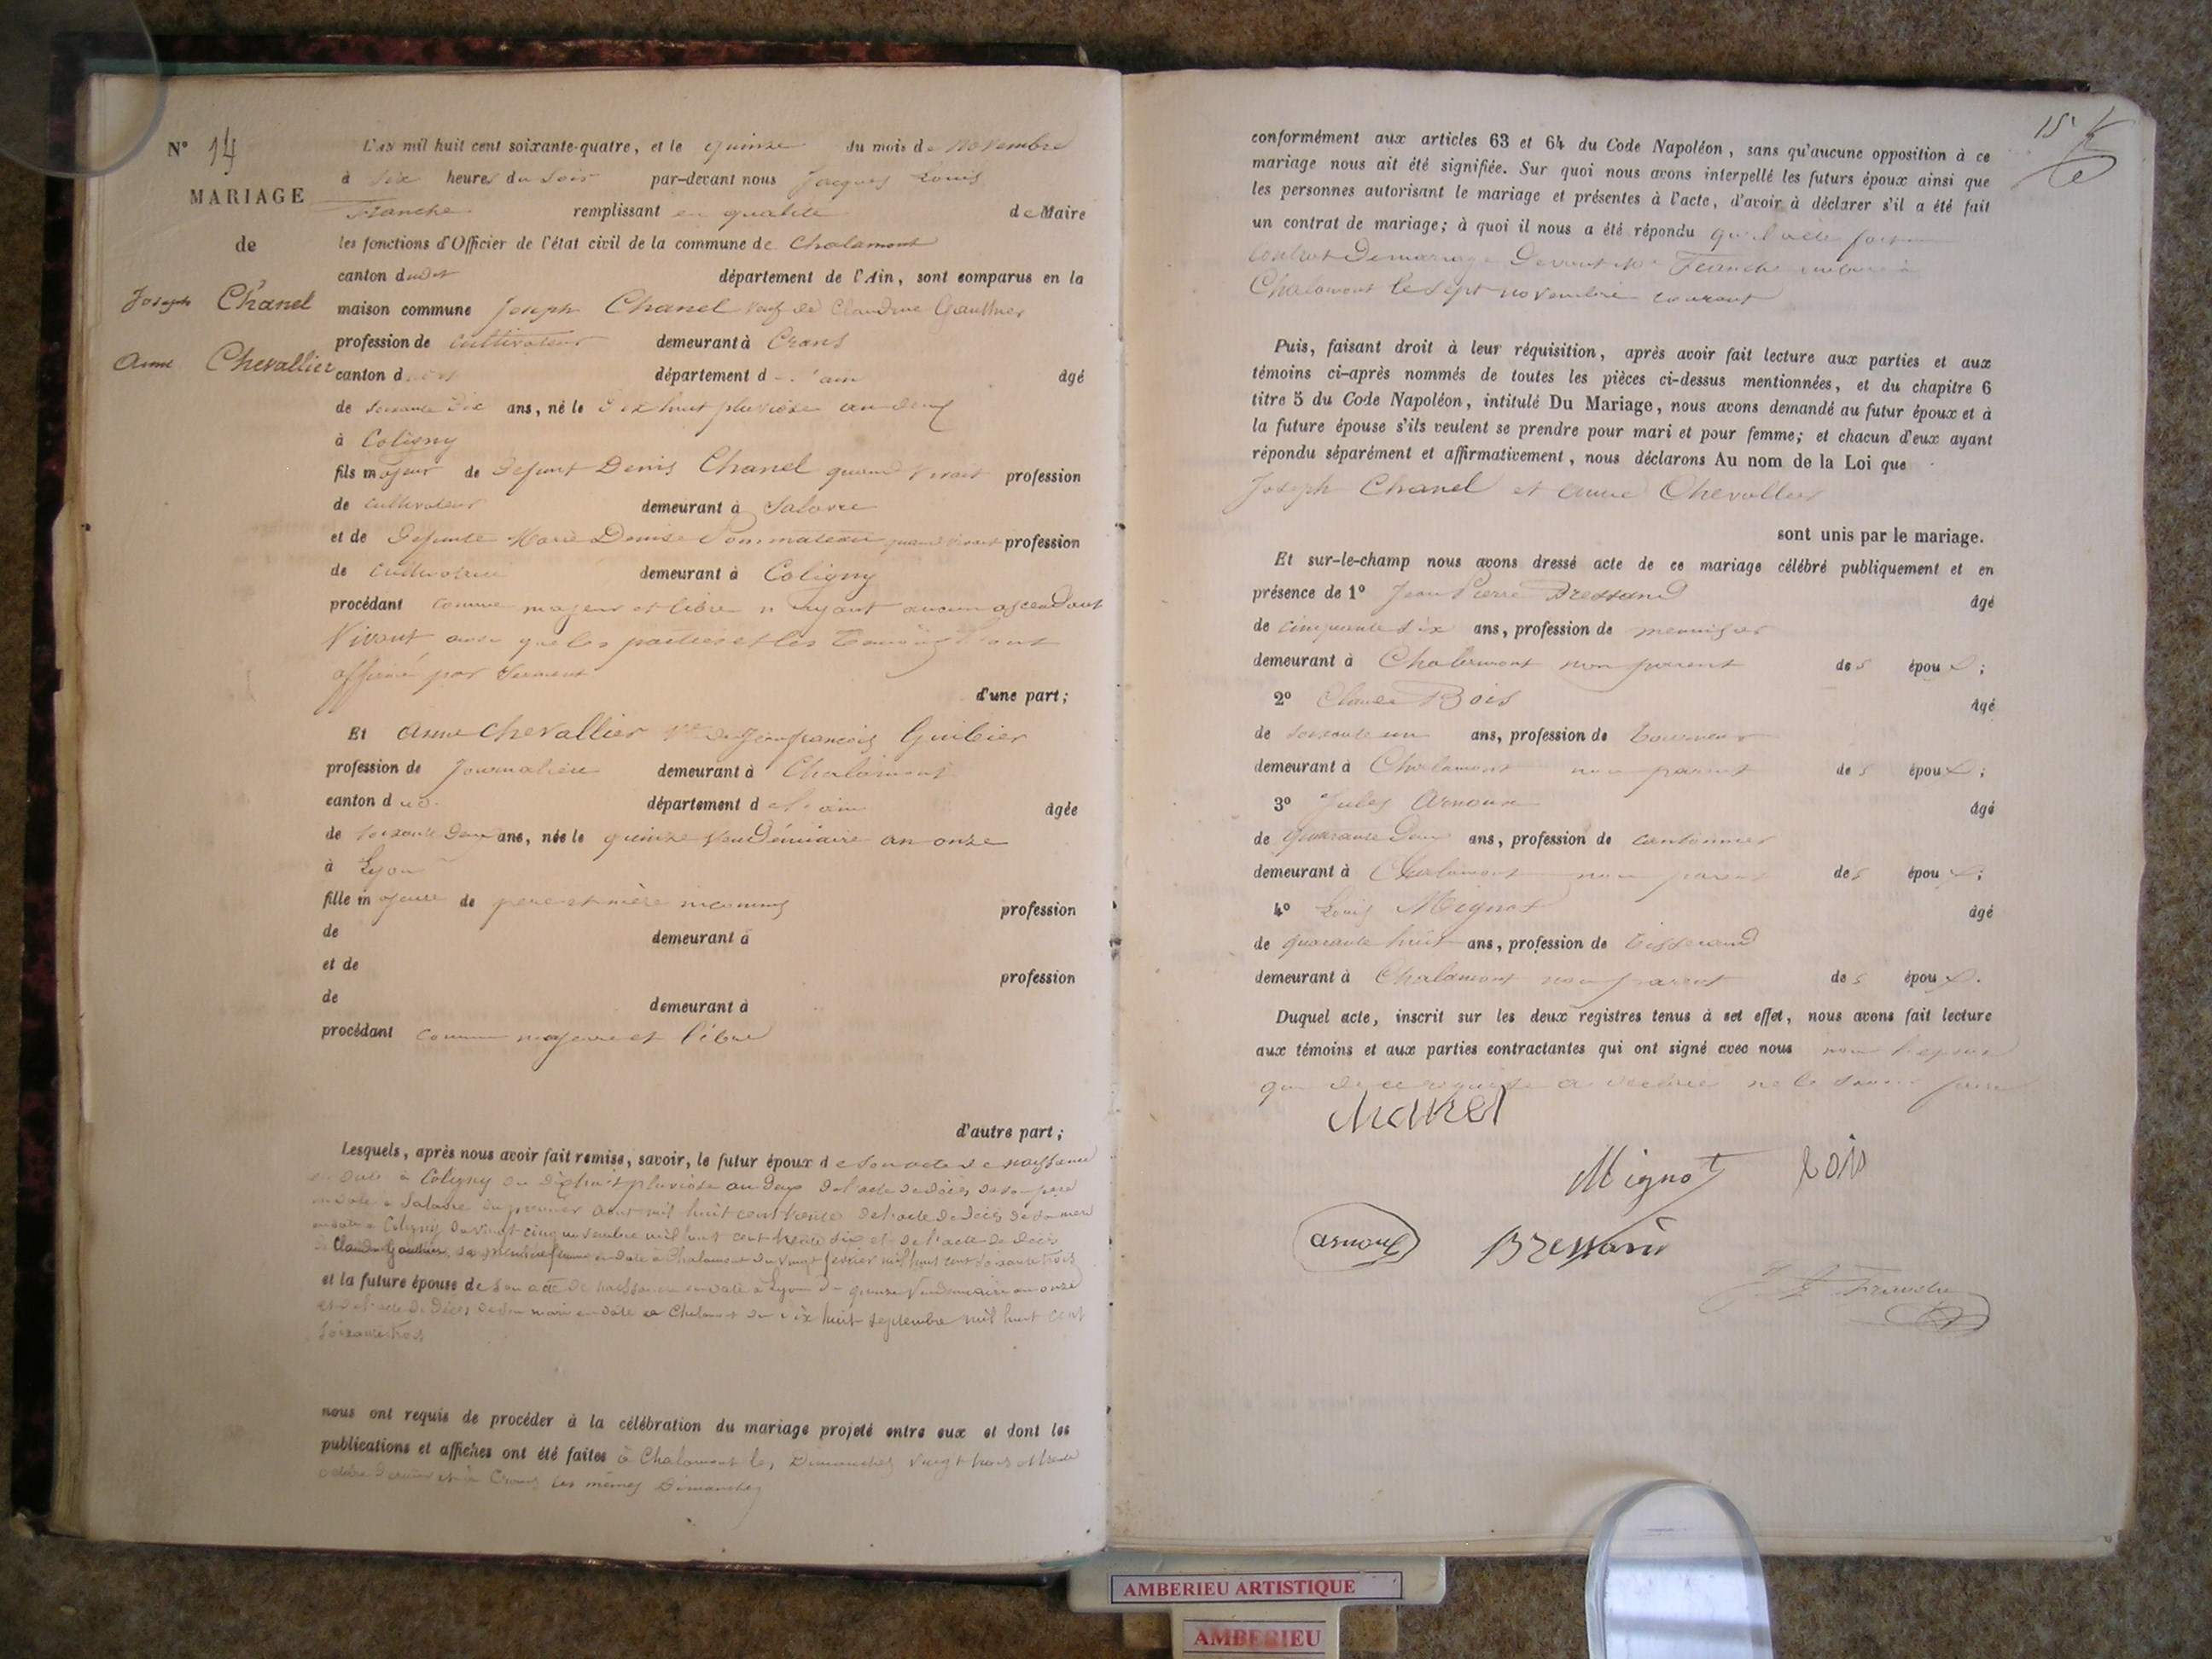 N° 14
MARIAGE
de
Joseph Chanel
Anne Chevallier
L'AN mil huit cent soixante-quatre, et le quinze du mois de Novembre
à six heures du soir par-devant nous Jacques Louis
Franche remplissant en qualité de Maire
les fonctions d'Officier de l'état civil de la commune de Chalamont
canton dudit département de l'Ain, sont comparus en la
maison commune Joseph Chanel veuf de Claudine Gauthier
profession de cultivateur demeurant à Crans
canton d département d ain âgé
de soixante dix ans, né le dix huit pluviôse an deux
à Coligny
fils majeur de défunt Denis Chanel quand vivait profession
de cultivateur demeurant à Salavre
et de défunte Marie Denise Pommateau quand vivait profession
de cultivatrice demeurant à Coligny
procédant comme majeur et libre n'ayant aucun ascendant
vivant ainsi que les parties et les témoins l'ont
affirmé par serment
d'une part;
Et Anne Chevallier Ve de Jean francois Guibier
profession de journalière demeurant à Chalamont
canton dud. département de l'ain âgée
de soixante deux ans, née le quinze Vendémiaire an onze
à Lyon
fille majeure de père et mère inconnus profession
de demeurant à
et de profession
de demeurant à
procédant comme majeure et libre
d'autre part;
Lesquels, après nous avoir fait remise, savoir, le futur époux de son acte de naissance
en date à Coligny du dix huit pluviôse an deux de l'acte de décès de son père
en date à Salavre du premier aout mil huit cent trente de l'acte de décès de sa mère
en date à Coligny du vingt cinq novembre mil huit cent trente six et de l'acte de décès
de Claudine Gauthier, sa première femme en date à Chalamont du vingt février mil huit cent soixante trois
et la future épouse de son acte de naissance en date à Lyon du quinze Vendémiaire an onze
et de l'acte de décès de son mari en date à Chalamont du dix huit septembre mil huit cent
soixante trois
nous ont requis de procéder à la célébration du mariage projeté entre eux et dont les
publications et affiches ont été faites à Chalamont les Dimanches vingt trois et trente
octobre dernier et à Crans les mêmes Dimanches
15
conformément aux articles 63 et 64 du Code Napoléon, sans qu'aucune opposition à ce
mariage nous ait été signifiée. Sur quoi nous avons interpellé les futurs époux ainsi que
les personnes autorisant le mariage et présentes à l'acte, d'avoir à déclarer s'il a été fait
un contrat de mariage; à quoi il nous a été répondu qu'il a été fait un
contrat de mariage devant Me Franche notaire à
Chalamont le sept novembre courant
Puis, faisant droit à leur réquisition, après avoir fait lecture aux parties et aux
témoins ci-après nommés de toutes les pièces ci-dessus mentionnées, et du chapitre 6
titre 5 du Code Napoléon, intitulé Du Mariage, nous avons demandé au futur époux et à
la future épouse s'ils veulent se prendre pour mari et pour femme; et chacun d'eux ayant
répondu séparément et affirmativement, nous déclarons Au nom de la Loi que
Joseph Chanel et Anne Chevallier
sont unis par le mariage.
Et sur-le-champ nous avons dressé acte de ce mariage célébré publiquement et en
présence de 1° Jean Pierre Bressand âgé
de cinquante six ans, profession de menuisier
demeurant à Chalamont non parent des époux;
2° Claude Bois âgé
de soixante un ans, profession de tourneur
demeurant à Chalamont non parent des époux;
3° Jules Arnoux âgé
de quarante deux ans, profession de cantonnier
demeurant à Chalamont non parent des époux;
4° Louis Mignot âgé
de quarante huit ans, profession de tisserand
demeurant à Chalamont non parent des époux.
Duquel acte, inscrit sur les deux registres tenus à cet effet, nous avons fait lecture
aux témoins et aux parties contractantes qui ont signé avec nous non l'épouse
qui de ce requise a déclaré ne le savoir faire
Chanel
Mignot Bois
arnoux Bressand
Franche
AMBERIEU ARTISTIQUE
AMBERIEU